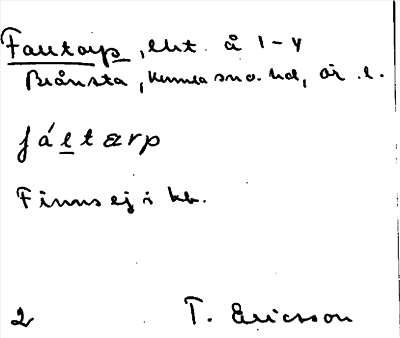 Fautorp, lht. å 1-4
Brånsta, Kumla sn o. hd, Ör. l.
fáltærp
Finns ej i kb.
2 T. Ericsson